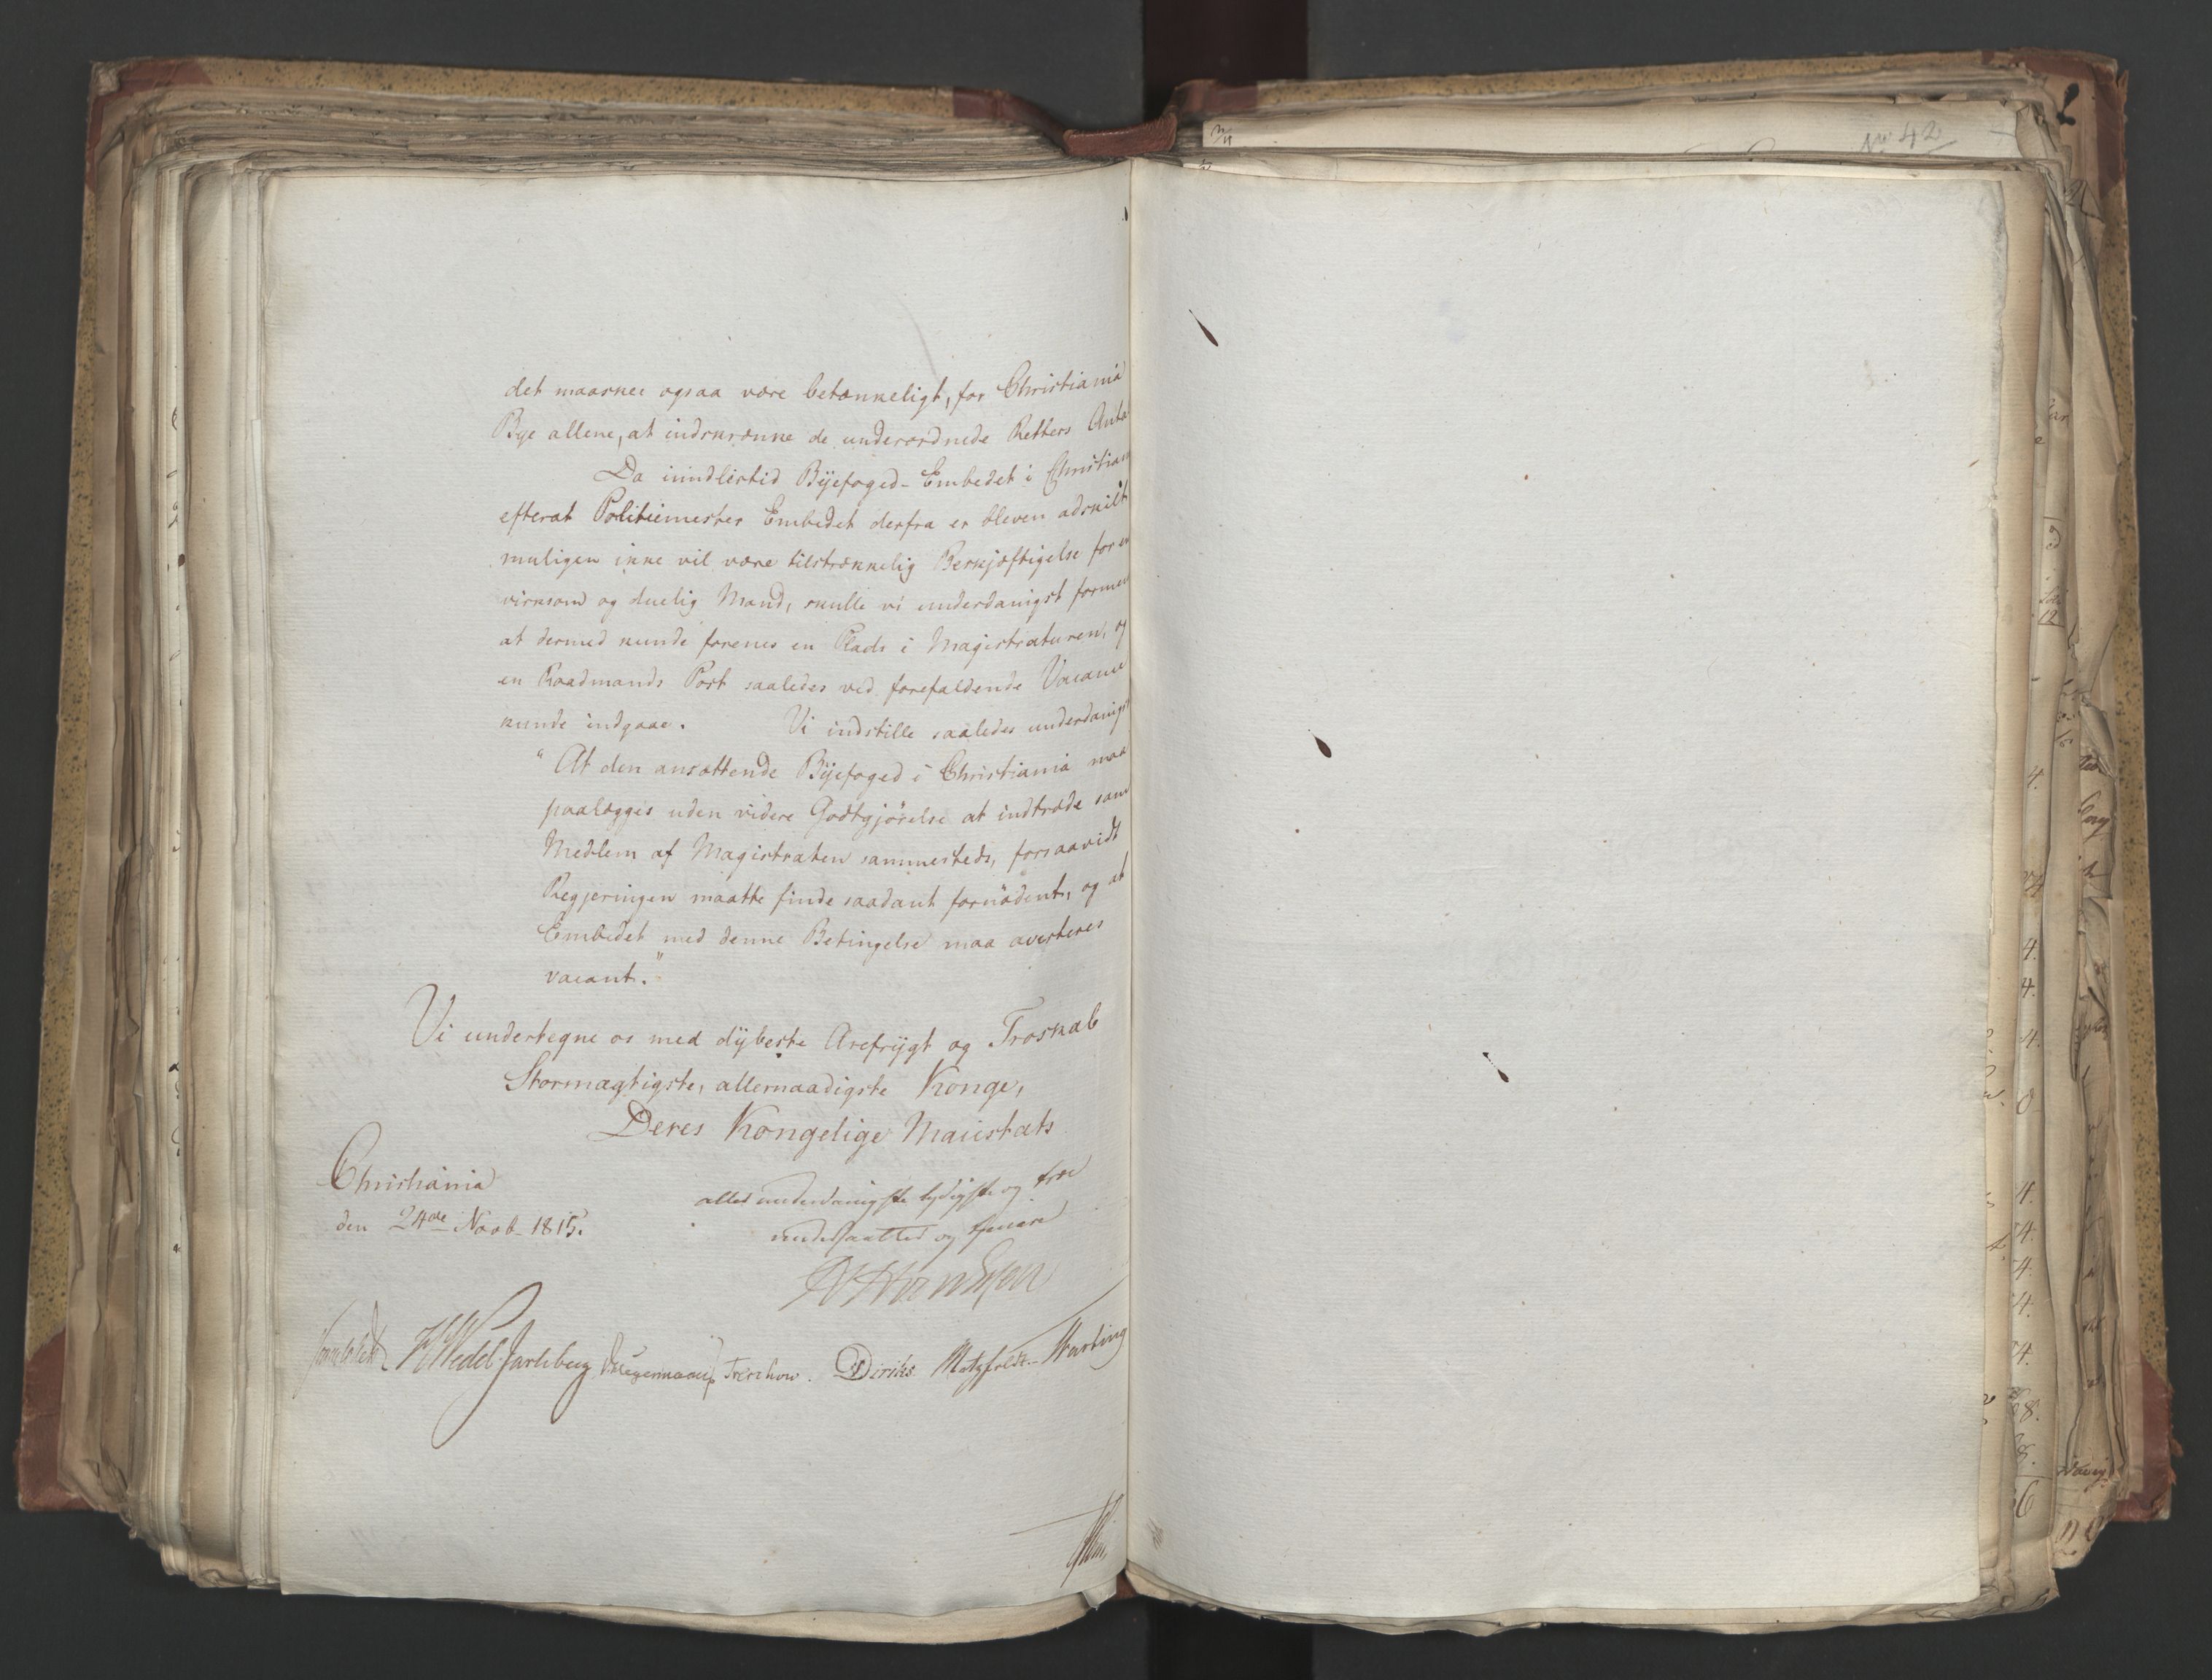 det maaskee ogsaa være betænkeligt, for Christiania
Bye allene, at indskrænke de underordnede Retters Antal
Da imidlertid Byefoged-Embedet i Christian
efterat Politiemester Embedet derfra er bleven adskilt
muligen ikke vil være tilstrækkelig Beskjæftigelse for en
virksom og duelig Mand, skulle vi underdanigst formen
at dermed kunde forenes en Plads i Magistraturen, og
en Raadmands Post saaledes ved forefaldende Vacance
kunde indgaae. Vi indstille saaledes underdanigst
"At den ansættende Byefoged i Christiania maa
paalægges uden videre Godtgjörelse at indtræde som
Medlem af Magistraten sammesteds, forsaavidt
Regjeringen maatte finde saadant fornödent, og at
Embedet med denne Betingelse maa averteres
vacant."
Vi undertegne os med dybeste Ærefrygt og Troskab
Stormægtigste, allernaadigste Konge,
Deres Kongelige Majestæts
Christiania
den 24de Novb. 1815.
allerunderdanigste lydigste og troe
undersaatter og tjenere
Wedel Jarlsberg Treschow. Diriks Motzfeldt
No 42